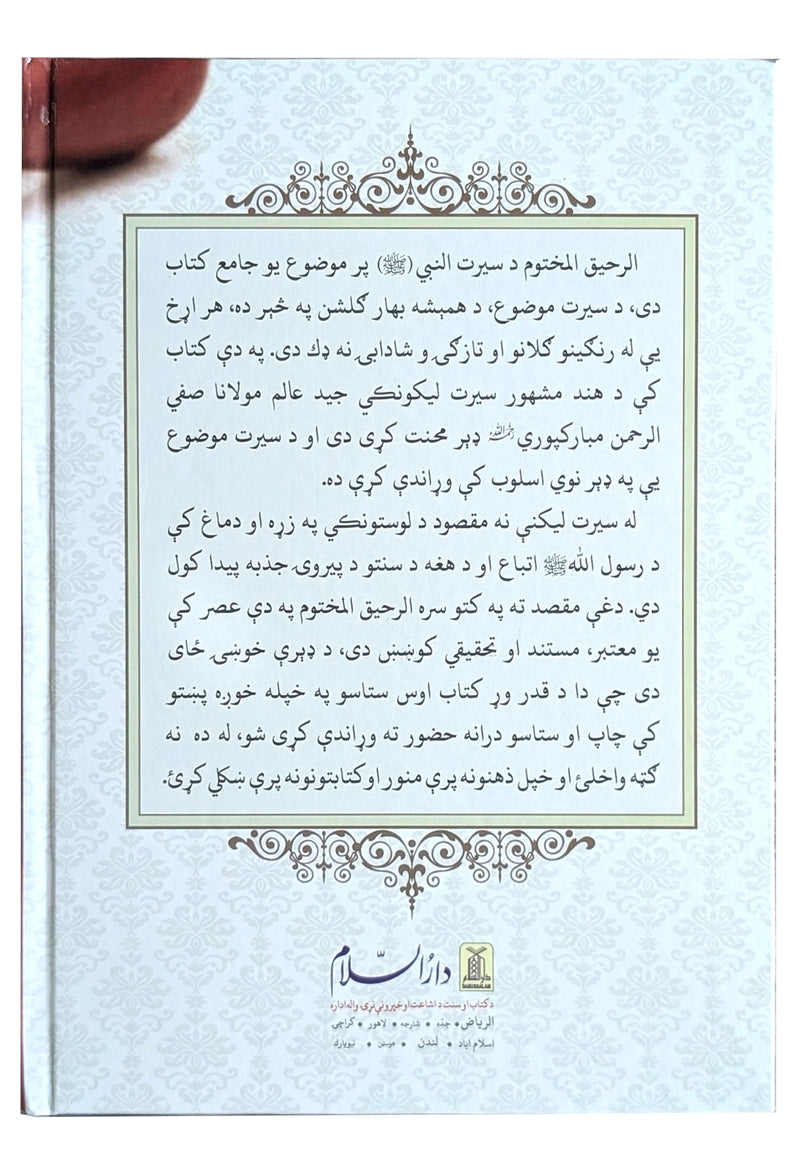 الرحيق المختوم د سيرت النبي (ﷺ) پر موضوع يو جامع كتاب
دى، د سيرت موضوع، د همېشه بهار ګلشن په څېر ده، هر اړخ
يې له رنګينو ګلانو او تازګۍ و شادابۍ نه ډك دى. په دې كتاب
كې د هند مشهور سيرت ليكونكي جيد عالم مولانا صفي
الرحمن مباركپوري رحمه الله ډېر محنت كړى دى او د سيرت موضوع
يې په ډېر نوي اسلوب كې وړاندې كړې ده.
له سيرت ليكنې نه مقصود د لوستونكي په زړه او دماغ كې
د رسول الله ﷺ اتباع او د هغه د سنتو د پيروۍ جذبه پيدا كول
دي. دغې مقصد ته په كتو سره الرحيق المختوم په دې عصر كې
يو معتبر، مستند او تحقيقي كوښښ دى، د ډېرې خوښۍ ځاى
دى چې دا د قدر وړ كتاب اوس ستاسو په خپله خوږه پښتو
كې چاپ او ستاسو درانه حضور ته وړاندې كړى شو، له ده نه
ګټه واخلئ او خپل ذهنونه پرې منور او كتابتونونه پرې ښكلي كړئ.
دارُالسّلام
دارالسلام
DARUSSALAM
د كتاب او سنت د اشاعت او خپرونې نړۍ واله اداره
الرياض • جده • شارجه • لاهور • كراچي
اسلام اباد • لندن • هوستن • نيويارك